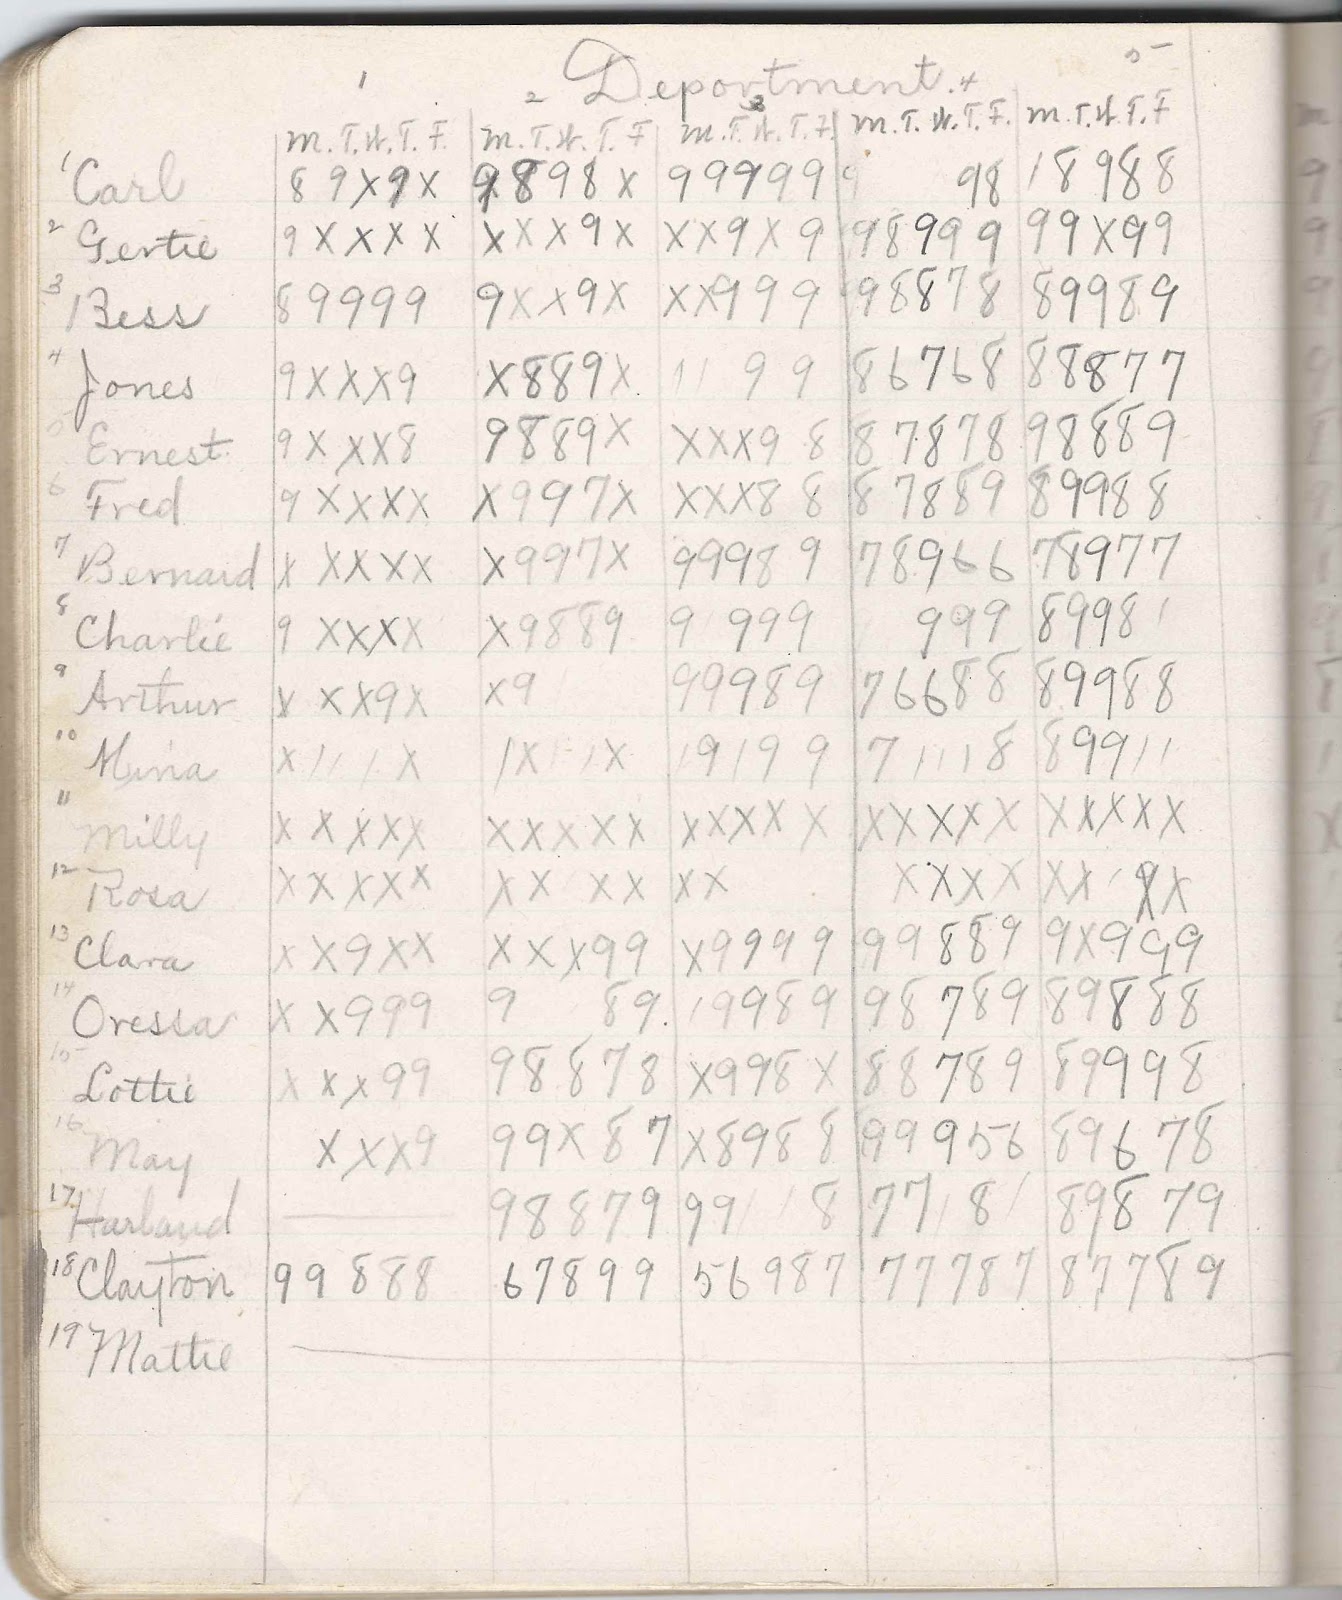 Deportment.
1 2 3 4 5
M. T. W. T. F. M. T. W. T. F M. T. W. T. F. M. T. W. T. F. M. T. W. T. F
1 Carl 8 9 X 9 X 9 8 9 8 X 9 9 9 9 9 9 9 8 1 8 9 8 8
2 Gertie 9 X X X X X X X 9 X X X 9 X 9 9 8 9 9 9 9 9 X 9 9
3 Bess 8 9 9 9 9 9 X X 9 X X X 9 9 9 9 8 8 7 8 8 9 9 8 9
4 Jones 9 X X X 9 X 8 8 9 X 1 1 9 9 8 6 7 6 8 8 8 8 7 7
5 Ernest 9 X X X 8 9 8 8 9 X X X X 9 8 8 7 8 7 8 9 8 8 8 9
6 Fred 9 X X X X X 9 9 7 X X X X 8 8 8 7 8 8 9 8 9 9 8 8
7 Bernard X X X X X X 9 9 7 X 9 9 9 8 9 7 8 9 6 6 7 8 9 7 7
8 Charlie 9 X X X X X 9 8 8 9 9 1 9 9 9 9 9 9 8 9 9 8 1
9 Arthur X X X 9 X X 9 1 9 9 9 8 9 7 6 6 8 8 8 9 9 8 8
10 Mina X 1 1 1 X 1 X 1 1 X 1 9 1 9 9 7 1 1 1 8 8 9 9 1 1
11 Milly X X X X X X X X X X X X X X X X X X X X X X X X X
12 Rosa X X X X X X X X X X X X X X X X X 1 9 X
13 Clara X X 9 X X X X X 9 9 X 9 9 9 9 9 9 8 8 9 9 X 9 9 9
14 Oressa X X 9 9 9 9 8 9. 1 9 9 8 9 9 8 7 8 9 8 9 8 8 8
15 Lottie X X X 9 9 9 8 8 7 8 X 9 9 8 X 8 8 7 8 9 8 9 9 9 8
16 May X X X 9 9 9 X 8 7 X 8 9 8 8 9 9 9 5 6 8 9 6 7 8
17 Harland 9 8 8 7 9 9 9 1 1 8 7 7 1 8 1 8 9 8 7 9
18 Clayton 9 9 8 8 8 6 7 8 9 9 5 6 9 8 7 7 7 7 8 7 8 7 7 8 9
19 Mattie